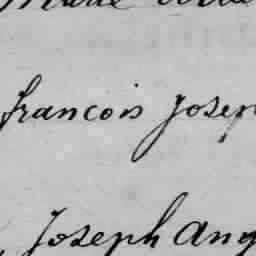 francois Joseph
Joseph Ang